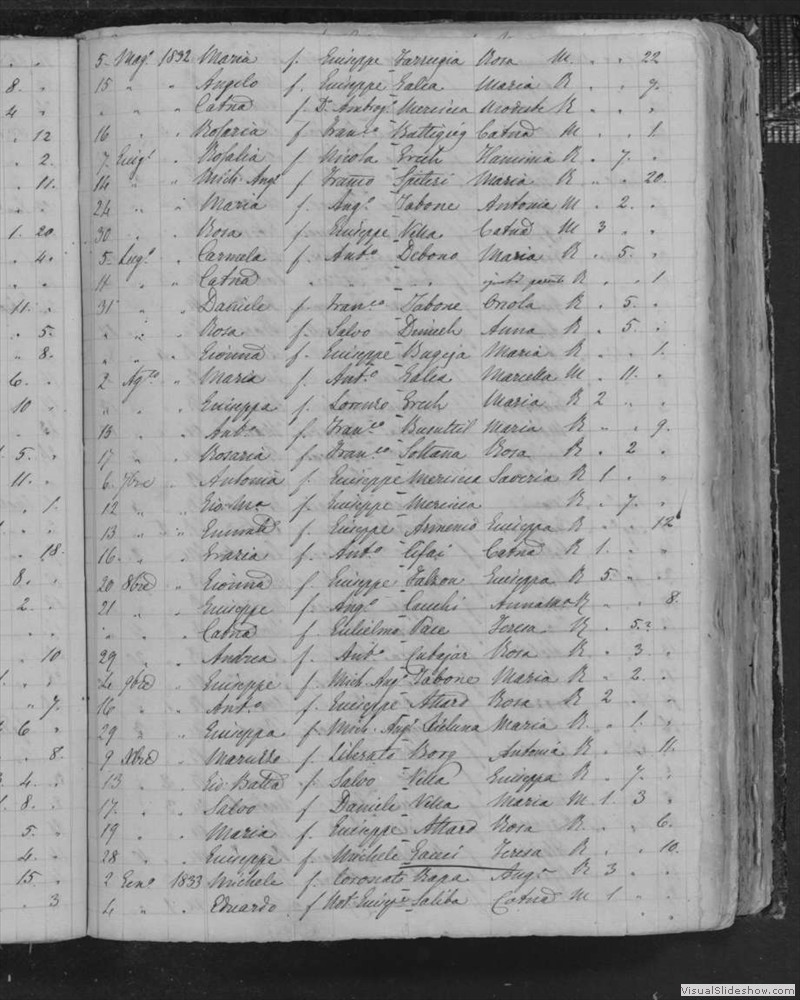 5 Magº 1832 Maria f. Giuseppe Farrugia Rosa M. . . 22
15 " " Angelo f. Giuseppe Galea Maria R . . 9.
" . " Catna f. Dr. Ambrogº Mercieca R . . "
16 . . Rosaria f Franco Battigieg Catna M . . 1
7 Giugº . Rosalia f Nicola Grech Flaminia R . 7. .
14 " " Mich: Angº f Spiteri Maria R " . 20
24 " " Maria f. Angº Tabone Antonia M . 2. .
30 " . Rosa f. Giuseppe Vella Catna M 3 . .
5 Lugº . Carmela f. Antº Debono Maria R . 5. .
11 " . Catna . . . . R . . 1
31 " . Daniele f Franco Tabone Orsola R . 5. .
" " . Rosa f. Salvo Dimech Anna R . 5. .
" " " Gionna f. Giuseppe Bugeja Maria R . . 1.
2 Agto " Maria f. Antº Galea Marcella M . 11. .
" . . Giuseppa f. Lorenzo Grech Maria R 2 " .
15 " . Antº f. Franco Buontil Maria R " . 9.
17 " . Rosaria f. Franco Soltana Rosa R . 2 .
6 7bre " Antonia f Giuseppe Mercieca Saveria R 1 . "
12 " . Gio Ma f. Giuseppe Mercieca R . 7. .
13 " " f. Giuseppe Armenio Giuseppa R . . 12
16 . " Grazia f. Antº Catna R 1. . .
20 8bre " Gionna f Giuseppe Falzon Giuseppa R 5. " .
21 " " Giuseppe f. Angº Cauchi R " . 8.
" . . Catna f Gulielmo Pace Teresa R . 5? .
29 . " Andrea f. Antº Cutajar Rosa R . 3 .
4 9bre " Giuseppe f. Mich: Angº Tabone Maria R . 2. .
16 " " Antº f. Giuseppe Attard Rosa R 2 . .
29 " " Giuseppa f. Mich: Angº Maria R . 1. .
9 Xbre " Maruzzo f. Liberato Borg Antonia R . . 11.
13 . . Gio: Batta f. Salvo Vella Giuseppa R . 7. .
17 . . Salvo f Daniele Vella Maria M 1. 3 .
19 " . Maria f. Giuseppe Attard Rosa R . . 6.
28 . . Giuseppe f. Michele Gauci Teresa R . . 10.
2 Genº 1833 Michele f. Coronato Rapa Angª R 3 . .
4 " " Eduardo f Not. Giuspe Saliba Catna M 1 . .
8. .
4 "
. 12
. 2.
. 11.
1. 20
. 4.
11. .
. 5.
" 8.
6. .
10 .
5. .
11. .
. 1.
. 18.
8. .
2. .
. 10
" 7.
6 .
. 8.
4. .
8. .
5. .
4. .
15 .
. 3
VisualSlideshow.com